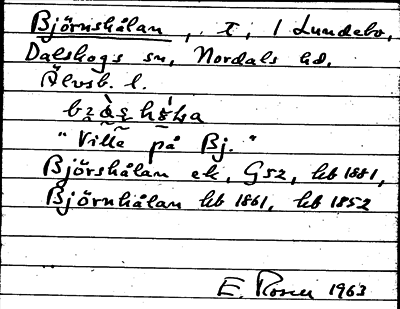 Björnshålan, t, 1 Lundebo,
Dalskogs sn, Nordals hd.
Älvsb. l.
"Ville på Bj."
Björshålan ek, G52, hb 1881,
Björnhålan hb 1861, hb 1852
E. Rosén 1963